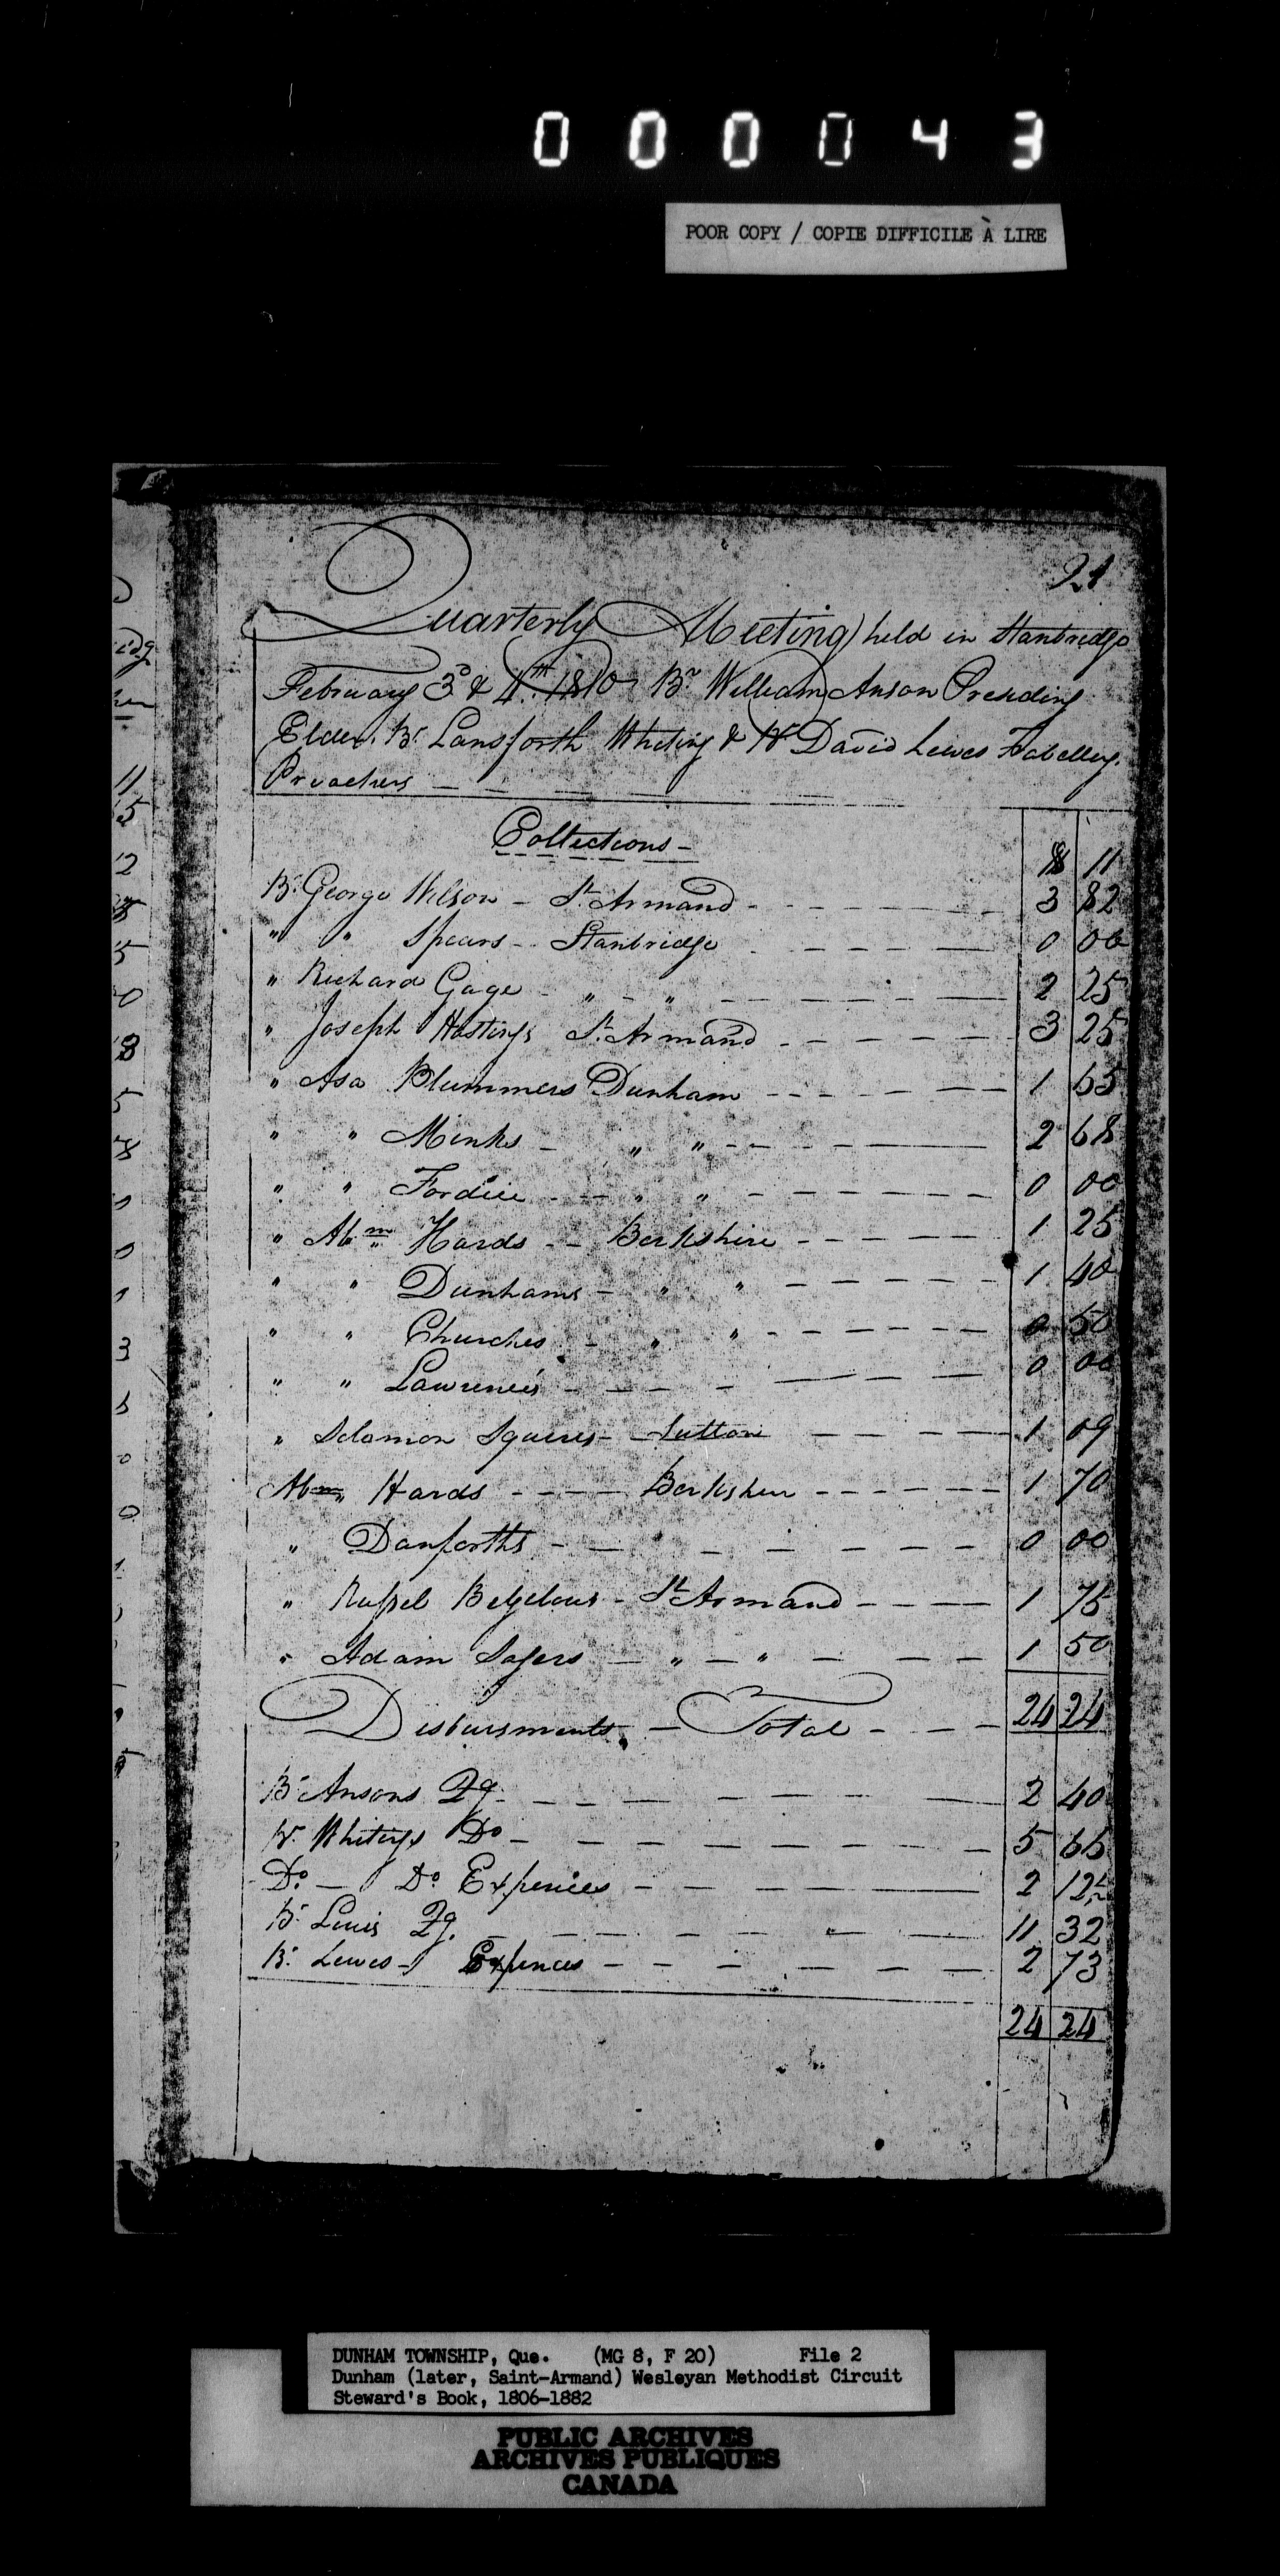 0 0 0 0 4 3
POOR COPY / COPIE DIFFICILE À LIRE
21
Quarterly Meeting held in Stanbridge
February 3d & 4th 1810 Br William Anson Presiding
Elder. Br Lansforth Whiting & Br David Lewes
Preachers
Collections $ 11
Br George Wilson - St Armand - 3 82
" " Spears - Stanbridge - 0 00
" Richard Gage - " - " - 2 25
" Joseph Hastings St Armand - 3 25
" Asa Plummers Dunham - 1 65
" " Minks - " " - 2 68
" " Fordice - " " - 0 00
" Abm Hards - Berkshire - 1 25
" " Dunhams - " " - 1 40
" " Churches - " " - 0 50
" " Lawrences - 0 00
" Solomon Squires - Sutton - 1 09
Abm Hards - Berkshire - 1 70
" Danforths - 0 00
" Russel - St Armand - 1 75
" Adam Sagers - " - " - 1 50
Disbursments - Total - 24 24
Br Ansons Qg - 2 40
Br Whitings Do - 5 66
Do - Do Expences - 2 12½
Br Lewis Qg. - 11 32
Br Lewes - Expences - 2 73
24 24
DUNHAM TOWNSHIP, Que. (MG 8, F 20) File 2
Dunham (later, Saint-Armand) Wesleyan Methodist Circuit
Steward's Book, 1806-1882
PUBLIC ARCHIVES
ARCHIVES PUBLIQUES
CANADA